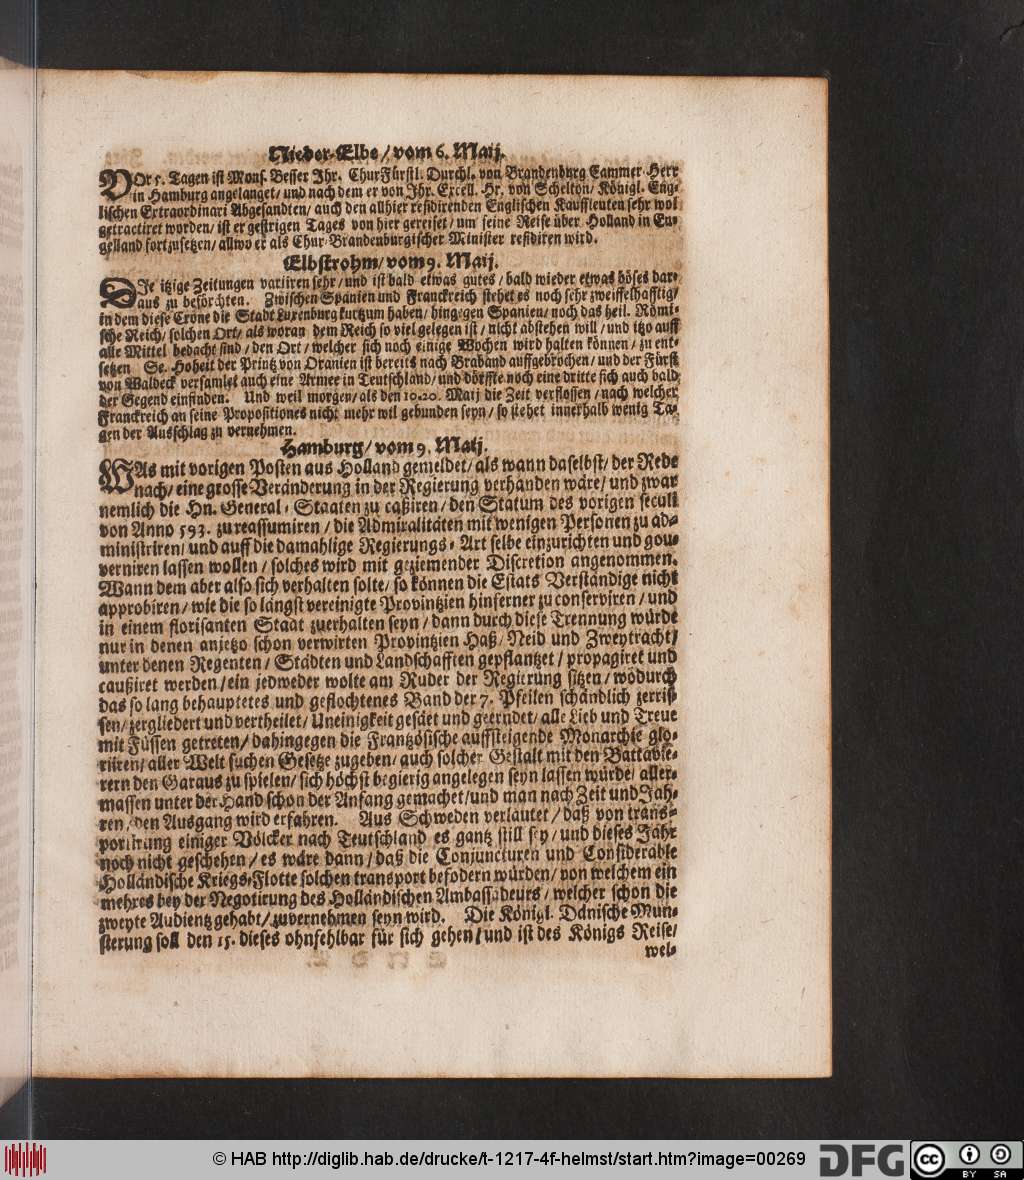 Nieder-Elbe / vom 6. Maij.
VOr 5. Tagen ist Mons. Besser Ihr. ChurFürstl. Durchl. von Brandenburg Cammer-Herr
in Hamburg angelanget / und nach dem er von Ihr. Excell. Hr. von Schelton / Königl. Eng-
lischen Extraordinari Abgesandten / auch den allhier residirenden Englischen Kauffleuten sehr wol
getractiret worden / ist er gestrigen Tages von hier gereiset / um seine Reise über Holland in En-
gelland fortzusetzen / allwo er als Chur-Brandenburgischer Minister residiren wird.
Elbstrohm / vom 9. Maij.
DIe itzige Zeitungen variiren sehr / und ist bald etwas gutes / bald wieder etwas böses dar-
aus zu beförchten. Zwischen Spanien und Franckreich stehet es noch sehr zweiffelhafftig /
in dem diese Crone die Stadt Luxenburg kurtzum haben / hingegen Spanien / noch das heil. Römi-
sche Reich / solchen Ort / als woran dem Reich so viel gelegen ist / nicht abstehen will / und itzo auff
alle Mittel bedacht sind / den Ort / welcher sich noch einige Wochen wird halten können / zu ent-
setzen Se. Hoheit der Printz von Oranien ist bereits nach Braband auffgebrochen / und der Fürst
von Waldeck versamlet auch eine Armee in Teutschland / und dörffte noch eine dritte sich auch bald
der Gegend einfinden. Und weil morgen / als den 10.20. Maij die Zeit verflossen / nach welcher
Franckreich an seine Propositiones nicht mehr wil gebunden seyn / so stehet innerhalb wenig Ta-
gen der Ausschlag zu vernehmen.
Hamburg / vom 9. Maij.
WAs mit vorigen Posten aus Holland gemeldet / als wann daselbst / der Rede
nach / eine grosse Veränderung in der Regierung verhanden wäre / und zwar
nemlich die Hn. General-Staaten zu caßiren / den Statum des vorigen seculi
von Anno 593. zu reassumiren / die Admiralitäten mit wenigen Personen zu ad-
ministriren / und auff die damahlige Regierungs-Art selbe einzurichten und gou-
verniren lassen wollen / solches wird mit geziemender Discretion angenommen.
Wann dem aber also sich verhalten solte / so können die Estats Verständige nicht
approbiren / wie die so längst vereinigte Provintzien hinferner zu conserviren / und
in einem florisanten Staat zuerhalten seyn / dann durch diese Trennung würde
nur in denen anjetzo schon verwirten Provintzien Haß / Neid und Zweytracht /
unter denen Regenten / Städten und Landschafften gepflantzet / propagiret und
caußiret werden / ein jedweder wolte am Ruder der Regierung sitzen / wodurch
das so lang behauptetes und geflochtenes Band der 7. Pfeilen schändlich zerris-
sen / zergliedert und vertheilet / Uneinigkeit gesäet und geerndet / alle Lieb und Treue
mit Füssen getreten / dahingegen die Frantzösische auffsteigende Monarchie glo-
riiren / aller Welt suchen Gesetze zugeben / auch solcher Gestalt mit den Battavie-
rern den Garaus zu spielen / sich höchst begierig angelegen seyn lassen würde / aller-
massen unter der Hand schon der Anfang gemachet / und man nach Zeit und Jah-
ren / den Ausgang wird erfahren. Aus Schweden verlautet / daß von trans-
portirung einiger Völcker nach Teutschland es gantz still sey / und dieses Jahr
noch nicht geschehen / es wäre dann / daß die Conjuncturen und Considerable
Holländische Kriegs-Flotte solchen transport befodern würden / von welchem ein
mehres bey der Negotirung des Holländischen Ambassadeurs / welcher schon die
zweyte Audientz gehabt / zuvernehmen seyn wird. Die Königl. Dänische Mun-
sterung soll den 15. dieses ohnfehlbar für sich gehen / und ist des Königs Reise /
wel-
© HAB http://diglib.hab.de/drucke/t-1217-4f-helmst/start.htm?image=00269
DFG
cc BY SA